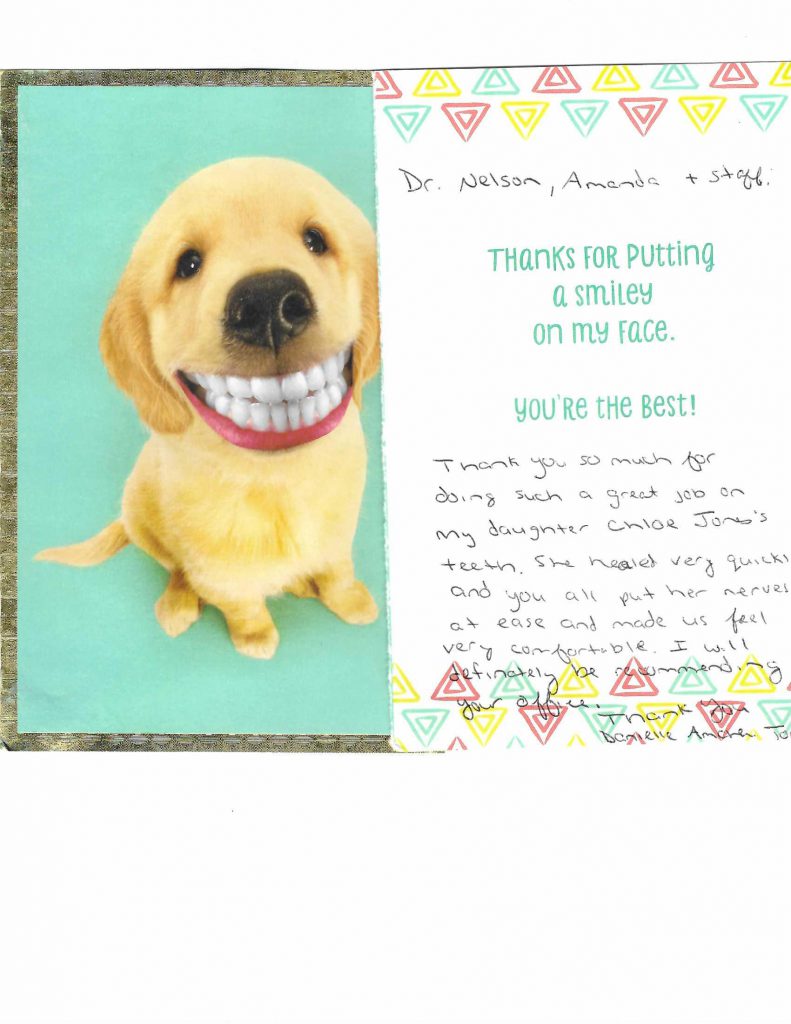 Dr. Nelson, Amanda + staff:
Thanks for putting
a smiley
on my face.
You're the best!
Thank you so much for
doing such a great job on
my daughter Chloe Jones's
teeth. She healed very quickl
and you all put her nerves
at ease and made us feel
very comfortable. I will
definately be recommending
your office.
Thank you
Danielle Andrew Jon